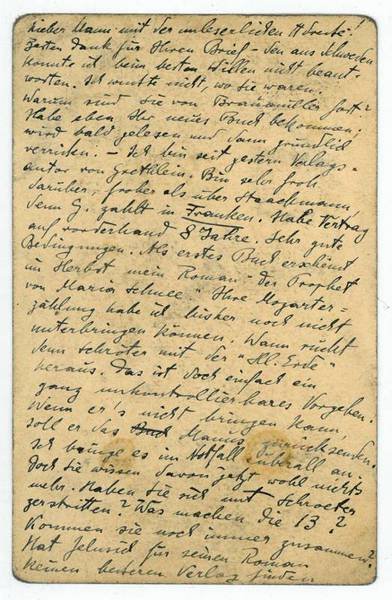 Lieber Mann mit der unleserlichen Schrift!
Besten Dank für Ihren Brief – den aus Schweden
konnte ich beim besten Willen nicht beant
worten. Ich wusste nicht, wo sie waren.
Warum sind Sie von Braumüller fort?
Habe eben Ihr neues Buch bekommen;
wird bald gelesen und dann gründlich
verrissen. – Ich bin seit gestern Verlags=
autor von Grethlein. Bin sehr froh
darüber, froher als über Staackmann,
denn G. zahlt in Franken. Habe Vertrag
auf vorderhand 8 Jahre. Sehr gute
Bedingungen. Als erstes Buch erscheint
im Herbst mein Roman "Der Prophet
von Maria Schnee". Ihre Mozarter=
zählung habe ich bisher noch nicht
unterbringen können. Wann rückt
denn Schröter mit der "Hl. Erde"
heraus. Das ist doch einfach ein
ganz unkontrollierbares Vorgehen.
Wenn er's nicht bringen kann,
soll er das Manus. zurücksenden.
Ich bringe es im Notfall überall an.
Doch Sie wissen davon jetzt wohl nichts
mehr. Haben Sie sich mit Schroeter
zerstritten? Was machen die 13?
Kommen sie noch immer zusammen?
Hat Jelusich für seinen Roman
keinen besseren Verlag finden